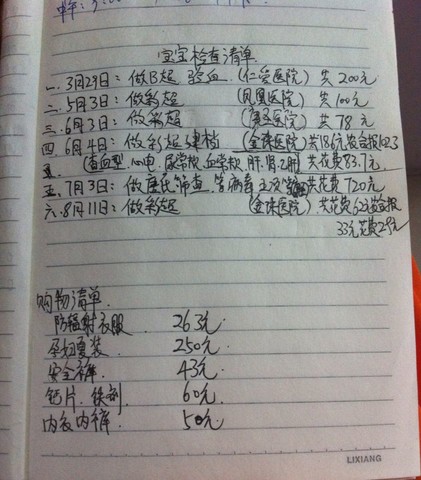 宝宝检查清单
一、3月29日：做B超 验血 （仁爱医院） 共200元
二、5月3日：做彩超 （凤凰医院） 共100元
三、6月3日：做彩超 共78元
四 6月4日：做彩超建档 （金珠医院）共186元
（查血型、心电、尿常规、血常规、肝、肾功） 共花费83.7元
五、7月3日：做唐氏筛查 共花费720元
六、8月11日：做彩超 （金珠医院）共花费62元
33元花费29元
购物清单
防辐射衣服 263元
孕妇夏装 250元
安全裤 43元
钙片、铁剂 60元
内衣内裤 50元
LIXIANG